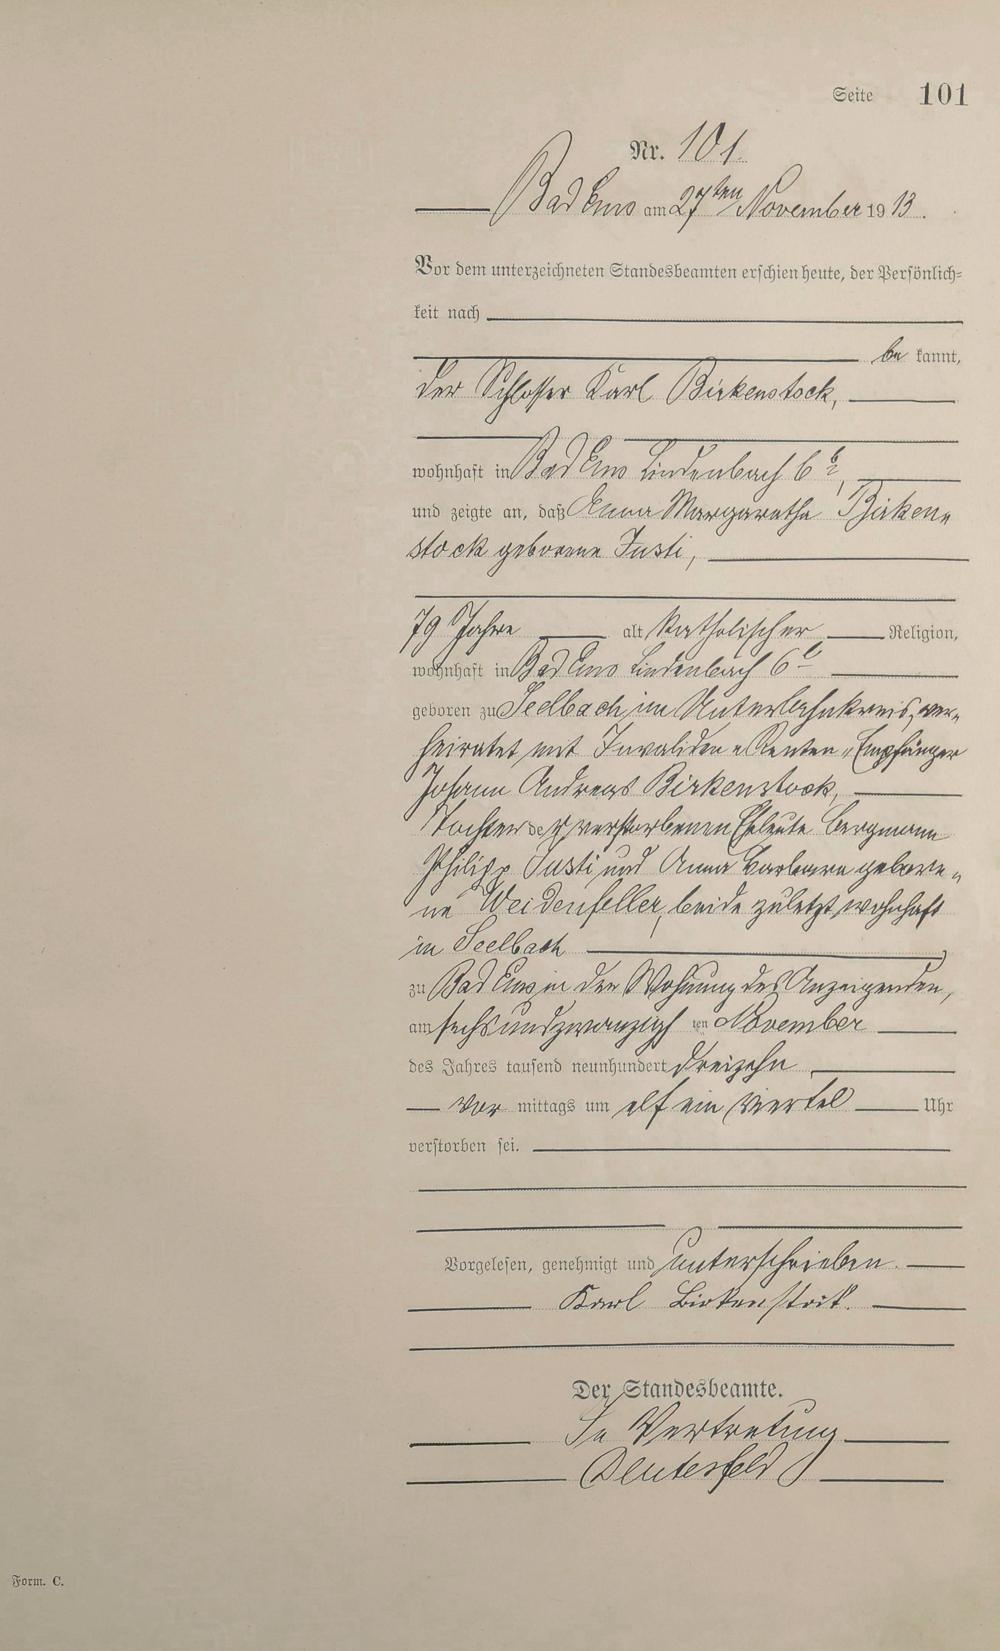 Seite 101
Nr. 101.
Bad Ems am 27ten November 1913.
Vor dem unterzeichneten Standesbeamten erschien heute, der Persönlich=
keit nach
be kannt,
der Schlosser Karl Birkenstock,
wohnhaft in Bad Ems Lindenbach 6
und zeigte an, daß Anna Margaretha Birken„
stock geborene Justi,
79 Jahre alt katholischer Religion,
wohnhaft in Bad Ems Lindenbach 6
geboren zu Seelbach im Unterlahnkreis, ver„
heiratet mit Invaliden „Renten„ Empfänger
Johann Andreas Birkenstock,
Tochter der verstorbenen Eheleute Bergmann
Philipp Justi und Anna Barbara gebore„
ne Weidenfeller, beide zuletzt wohnhaft
in Seelbach
zu Bad Ems in der Wohnung des Anzeigenden,
am sechsundzwanzigsten November
des Jahres tausend neunhundert dreizehn
Vor mittags um elf ein Viertel Uhr
verstorben sei.
Vorgelesen, genehmigt und unterschrieben.
Karl Birkenstock.
Der Standesbeamte.
In Vertretung
Form. C.